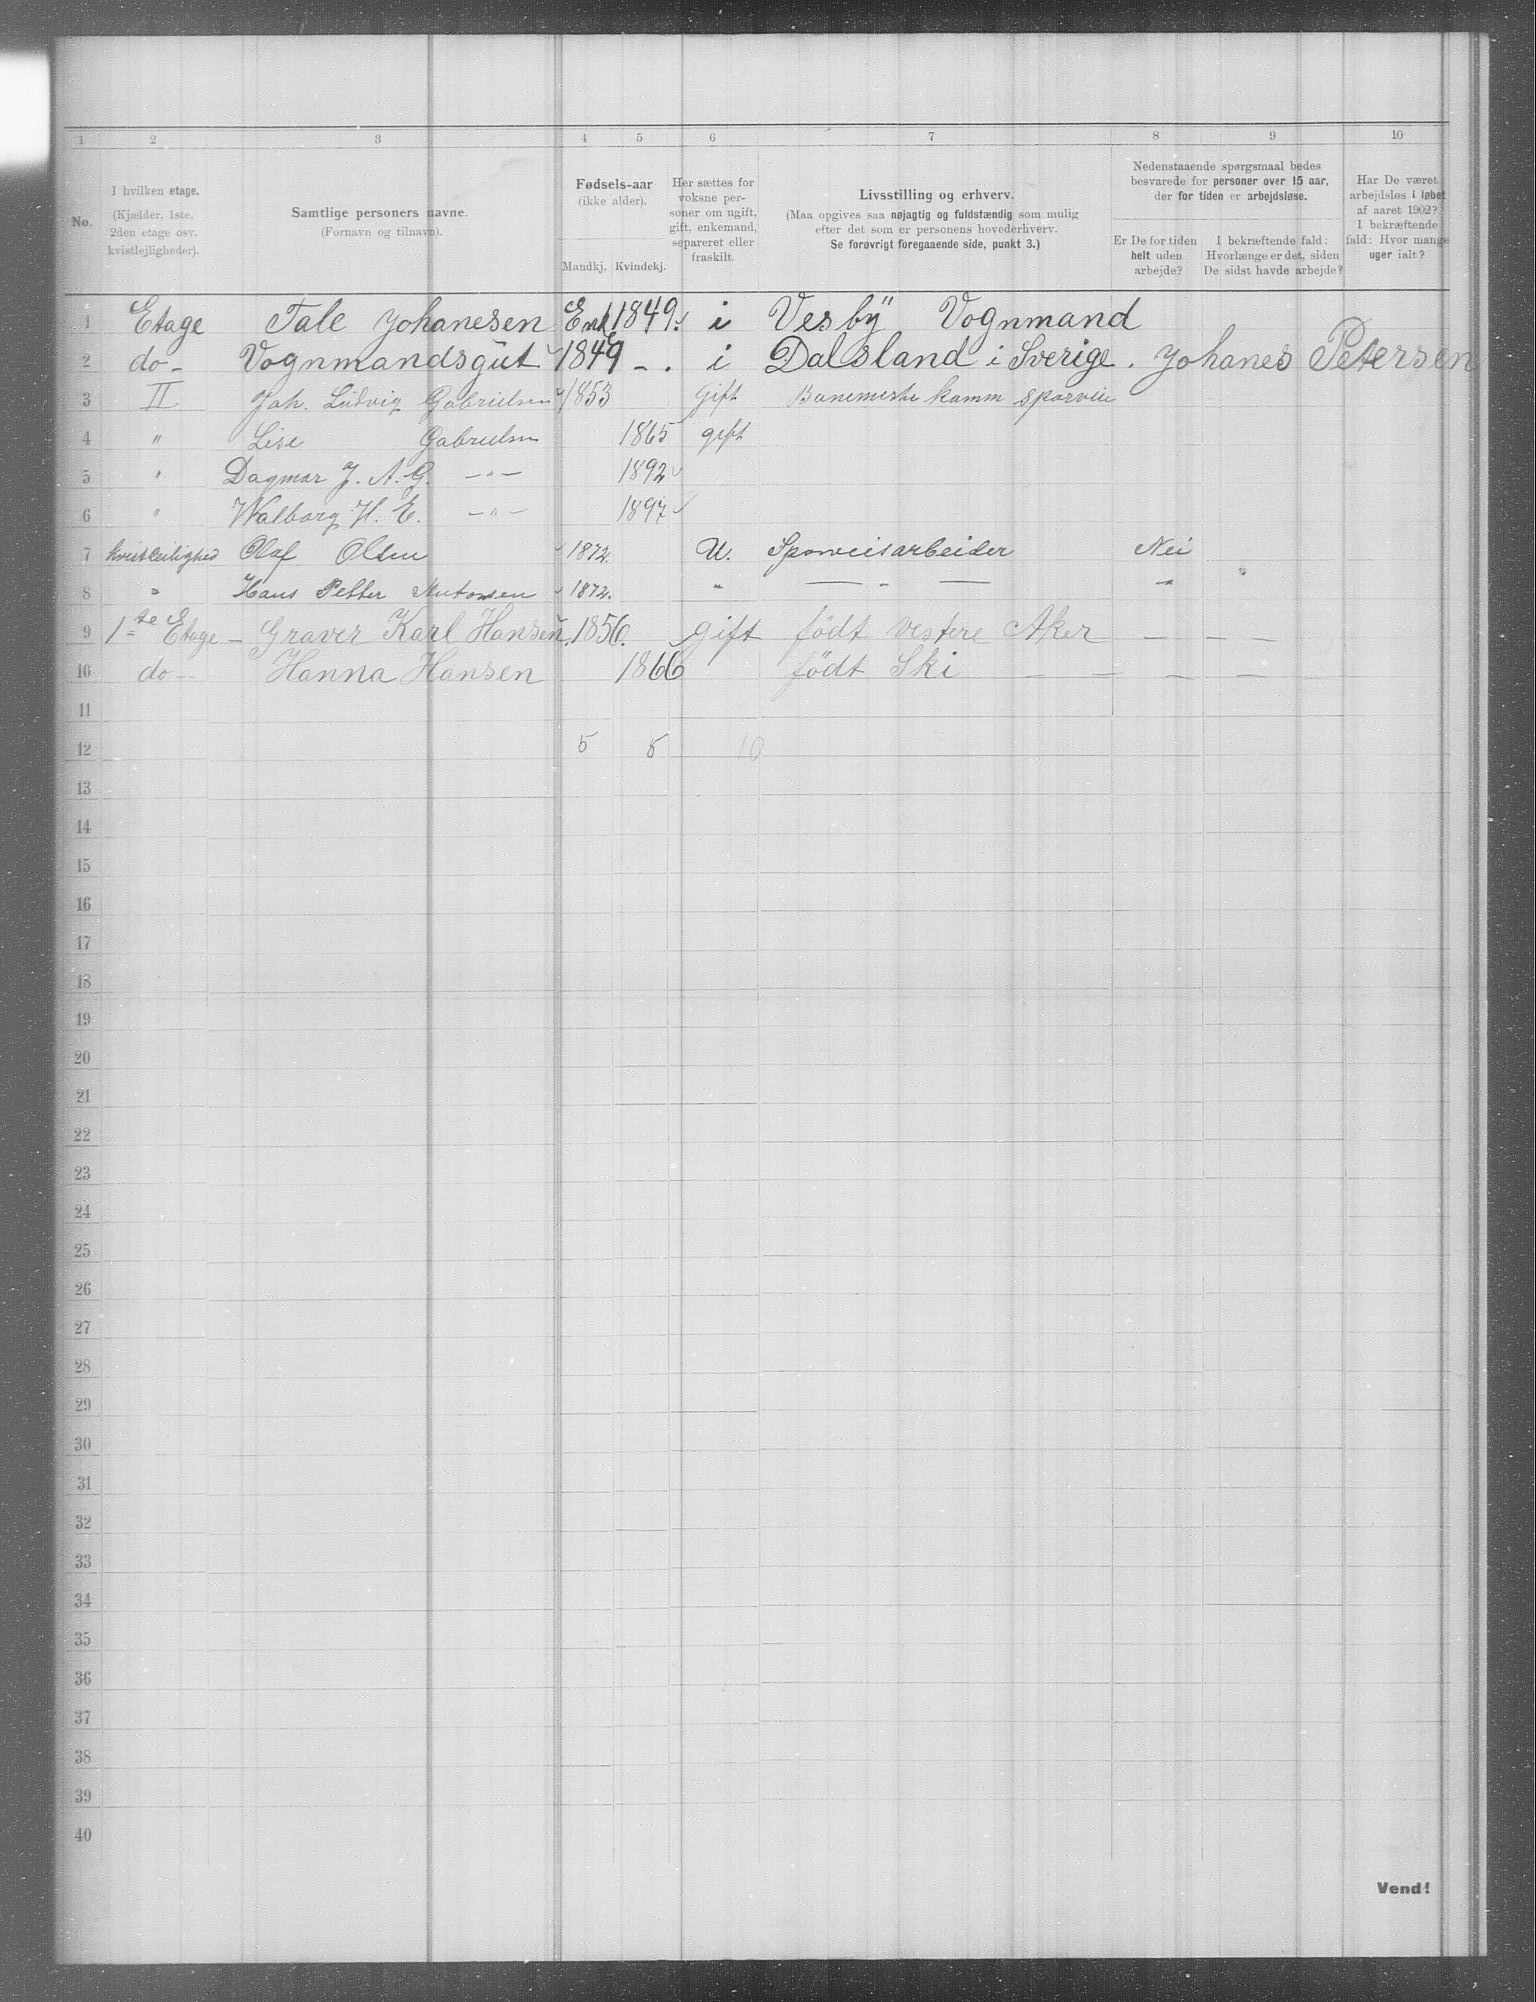 1 2 3 4 5 6 7 8 9 10
No.
I hvilken etage.
(Kjælder, 1ste,
2den etage osv.
kvistlejligheder).
Samtlige personers navne.
(Fornavn og tilnavn).
Fødsels-aar
(ikke alder).
Mandkj. Kvindekj.
Her sættes for
voksne per-
soner om ugift,
gift, enkemand,
separeret eller
fraskilt.
Livsstilling og erhverv.
(Maa opgives saa nøjagtig og fuldstændig som mulig
efter det som er personens hovederhverv.
Se forøvrigt foregaaende side, punkt 3.)
Nedenstaaende spørgsmaal bedes
besvarede for personer over 15 aar,
der for tiden er arbejdsløse.
Er De for tiden
helt uden
arbejde?
I bekræftende fald:
Hvorlænge er det, siden
De sidst havde arbejde?
Har De været
arbejdsløs i løbet
af aaret 1902?
I bekræftende
fald: Hvor mange
uger ialt?
1 Etage Tale Johanesen Enk 1849. i Vesby Vognmand
2 do - Vognmandsgut 1849 - . i Dalsland i Sverige . Johanes Petersen
3 II Joh. Ludvig Gabrielsen 1853 Gift Banemeste kamm sporvei
4 " Lise Gabrielsen 1865 gift
5 " Dagmar J. A. G. - " - 1892
6 " Walborg H. E. - " - 1897
7 kvistleilighed Olaf Olsen 1872. U. Sporveisarbeider Nei
8 " Hans Petter Antonsen 1872. " — " — "
9 1ste Etage - Graver Karl Hansen 1856. gift födt vestere Aker — — —
10 do - Hanna Hansen 1866 födt Ski — — — —
11
12 5 5 10
13
14
15
16
17
18
19
20
21
22
23
24
25
26
27
28
29
30
31
32
33
34
35
36
37
38
39
40
Vend!